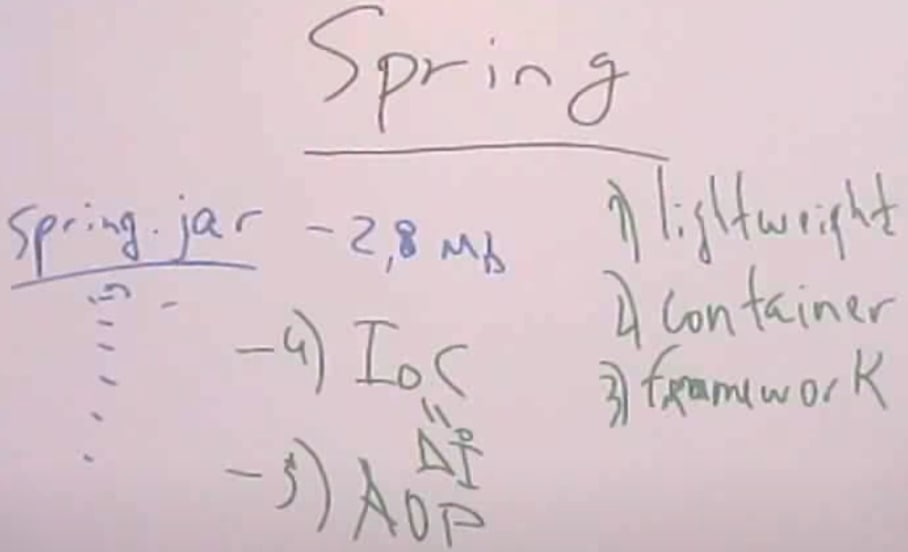 Spring
spring.jar - 2,8 Mb
1) lightweight
2) container
3) framework
- 4) IoC
"
DI
- 5) AOP